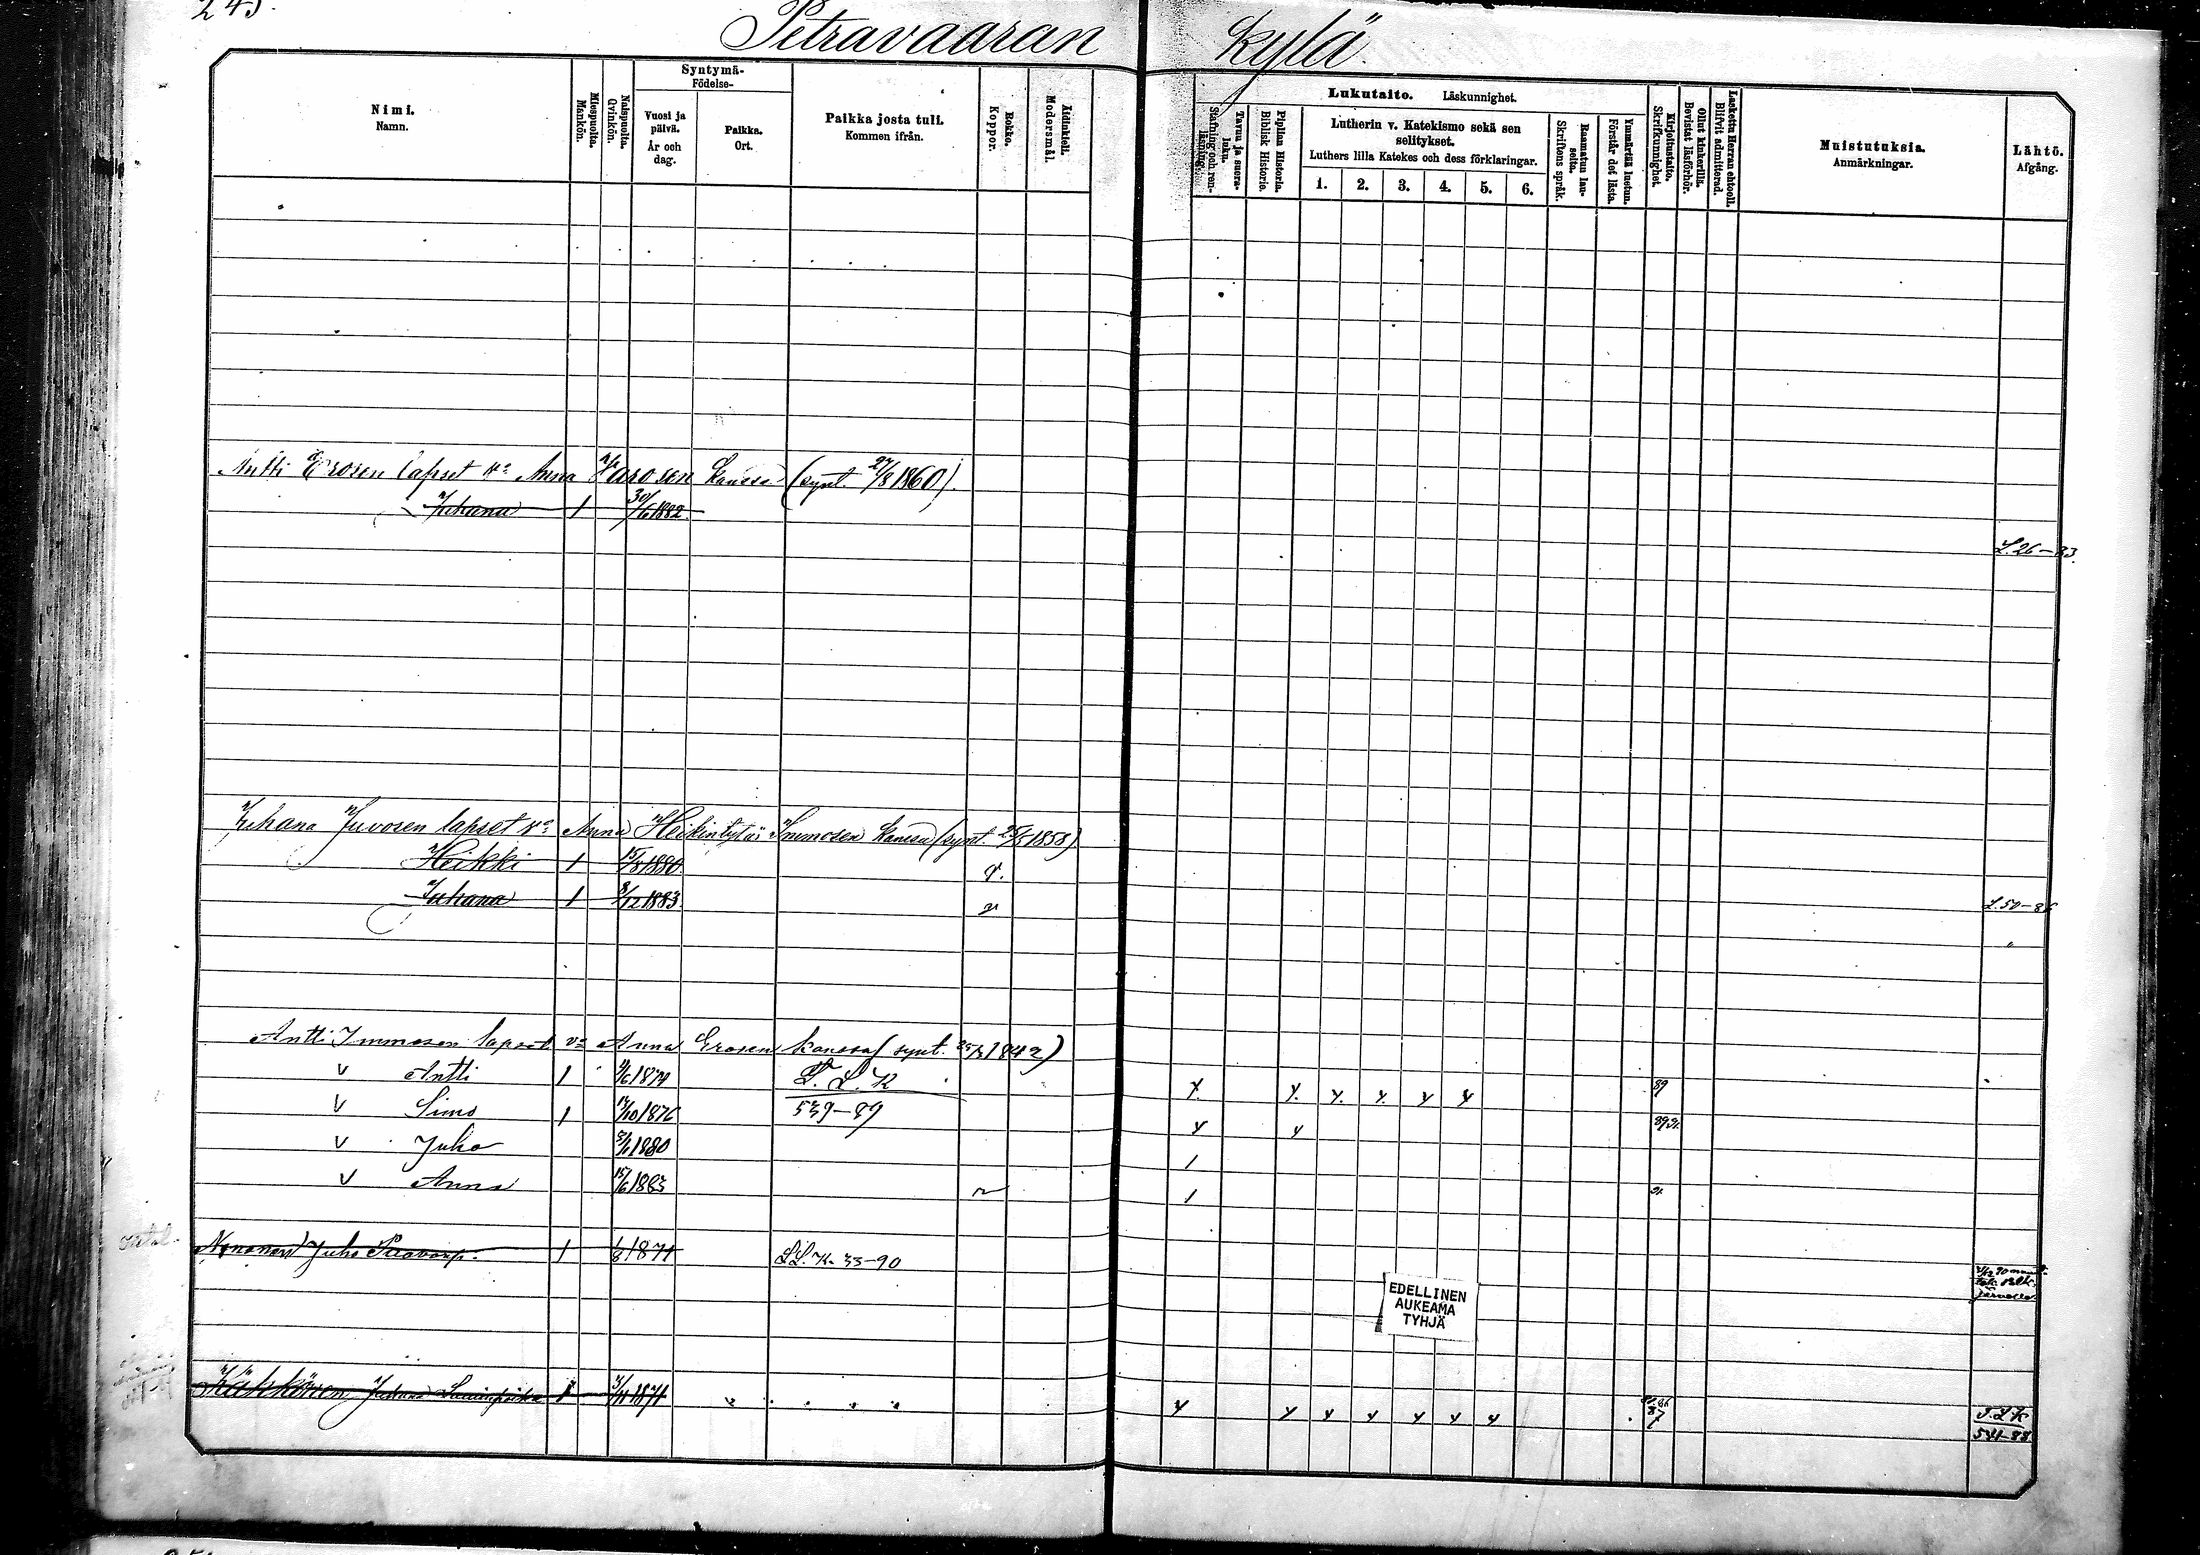 245.
Petravaaran kylä.
Nimi.
Namn.
Miespuolia.
Mankön.
Naispuolia.
Qvinkön.
Syntymä-
Födelse-
Vuosi ja päivä.
År och dag.
Paikka.
Ort.
Paikka josta tuli.
Kommen ifrån.
Rokko.
Koppor.
Äidinkieli.
Modersmål.
Lukutaito. Läskunnighet.
Tavuu ja suora-luku.
Stafning och ren-läsning.
Piplian Historia.
Biblisk Historie.
Lutherin v. Katekismo sekä sen selitykset.
Luthers lilla Katekes och dess förklaringar.
1. 2. 3. 4. 5. 6.
Raamatun lau-seita.
Skriftens språk.
Ymmärtää luetun.
Förstår det lästa.
Kirjoitustaito.
Skrifkunnighet.
Ollut kinkerillä.
Bevistat läsförhör.
Laskettu Herran ehtooll.
Blifvit admitterad.
Muistutuksia.
Anmärkningar.
Lähtö.
Afgång.
Antti Erosen lapset va Anna Karosen kanssa (synt. 27/8 1860).
Juhana 1 30/6 1882
L. 26-83
Juhana Juvosen lapset va Anna Heikintytär Immosen kanssa (synt. 25/5 1858)
Heikki 1 15/8 1880 v.
Juhana 1 8/12 1883 v L. 50-86
"
Antti Immosen lapset va Anna Erosen kanssa (synt. 25/3 1842)
v Antti 1 1/6 1874 T. L. K 89
v Simo 1 17/10 1876 539-89 89 91.
v Juho 5/1 1880 1
v Anna 15/6 1883 v 1 91.
Nenonen Juho Paavonp. 1 1/8 1871 L.L. K. 33-90
Kähkönen Juhana 1 3/11 1871 87 T. L. K
541-88
EDELLINEN
AUKEAMA
TYHJÄ